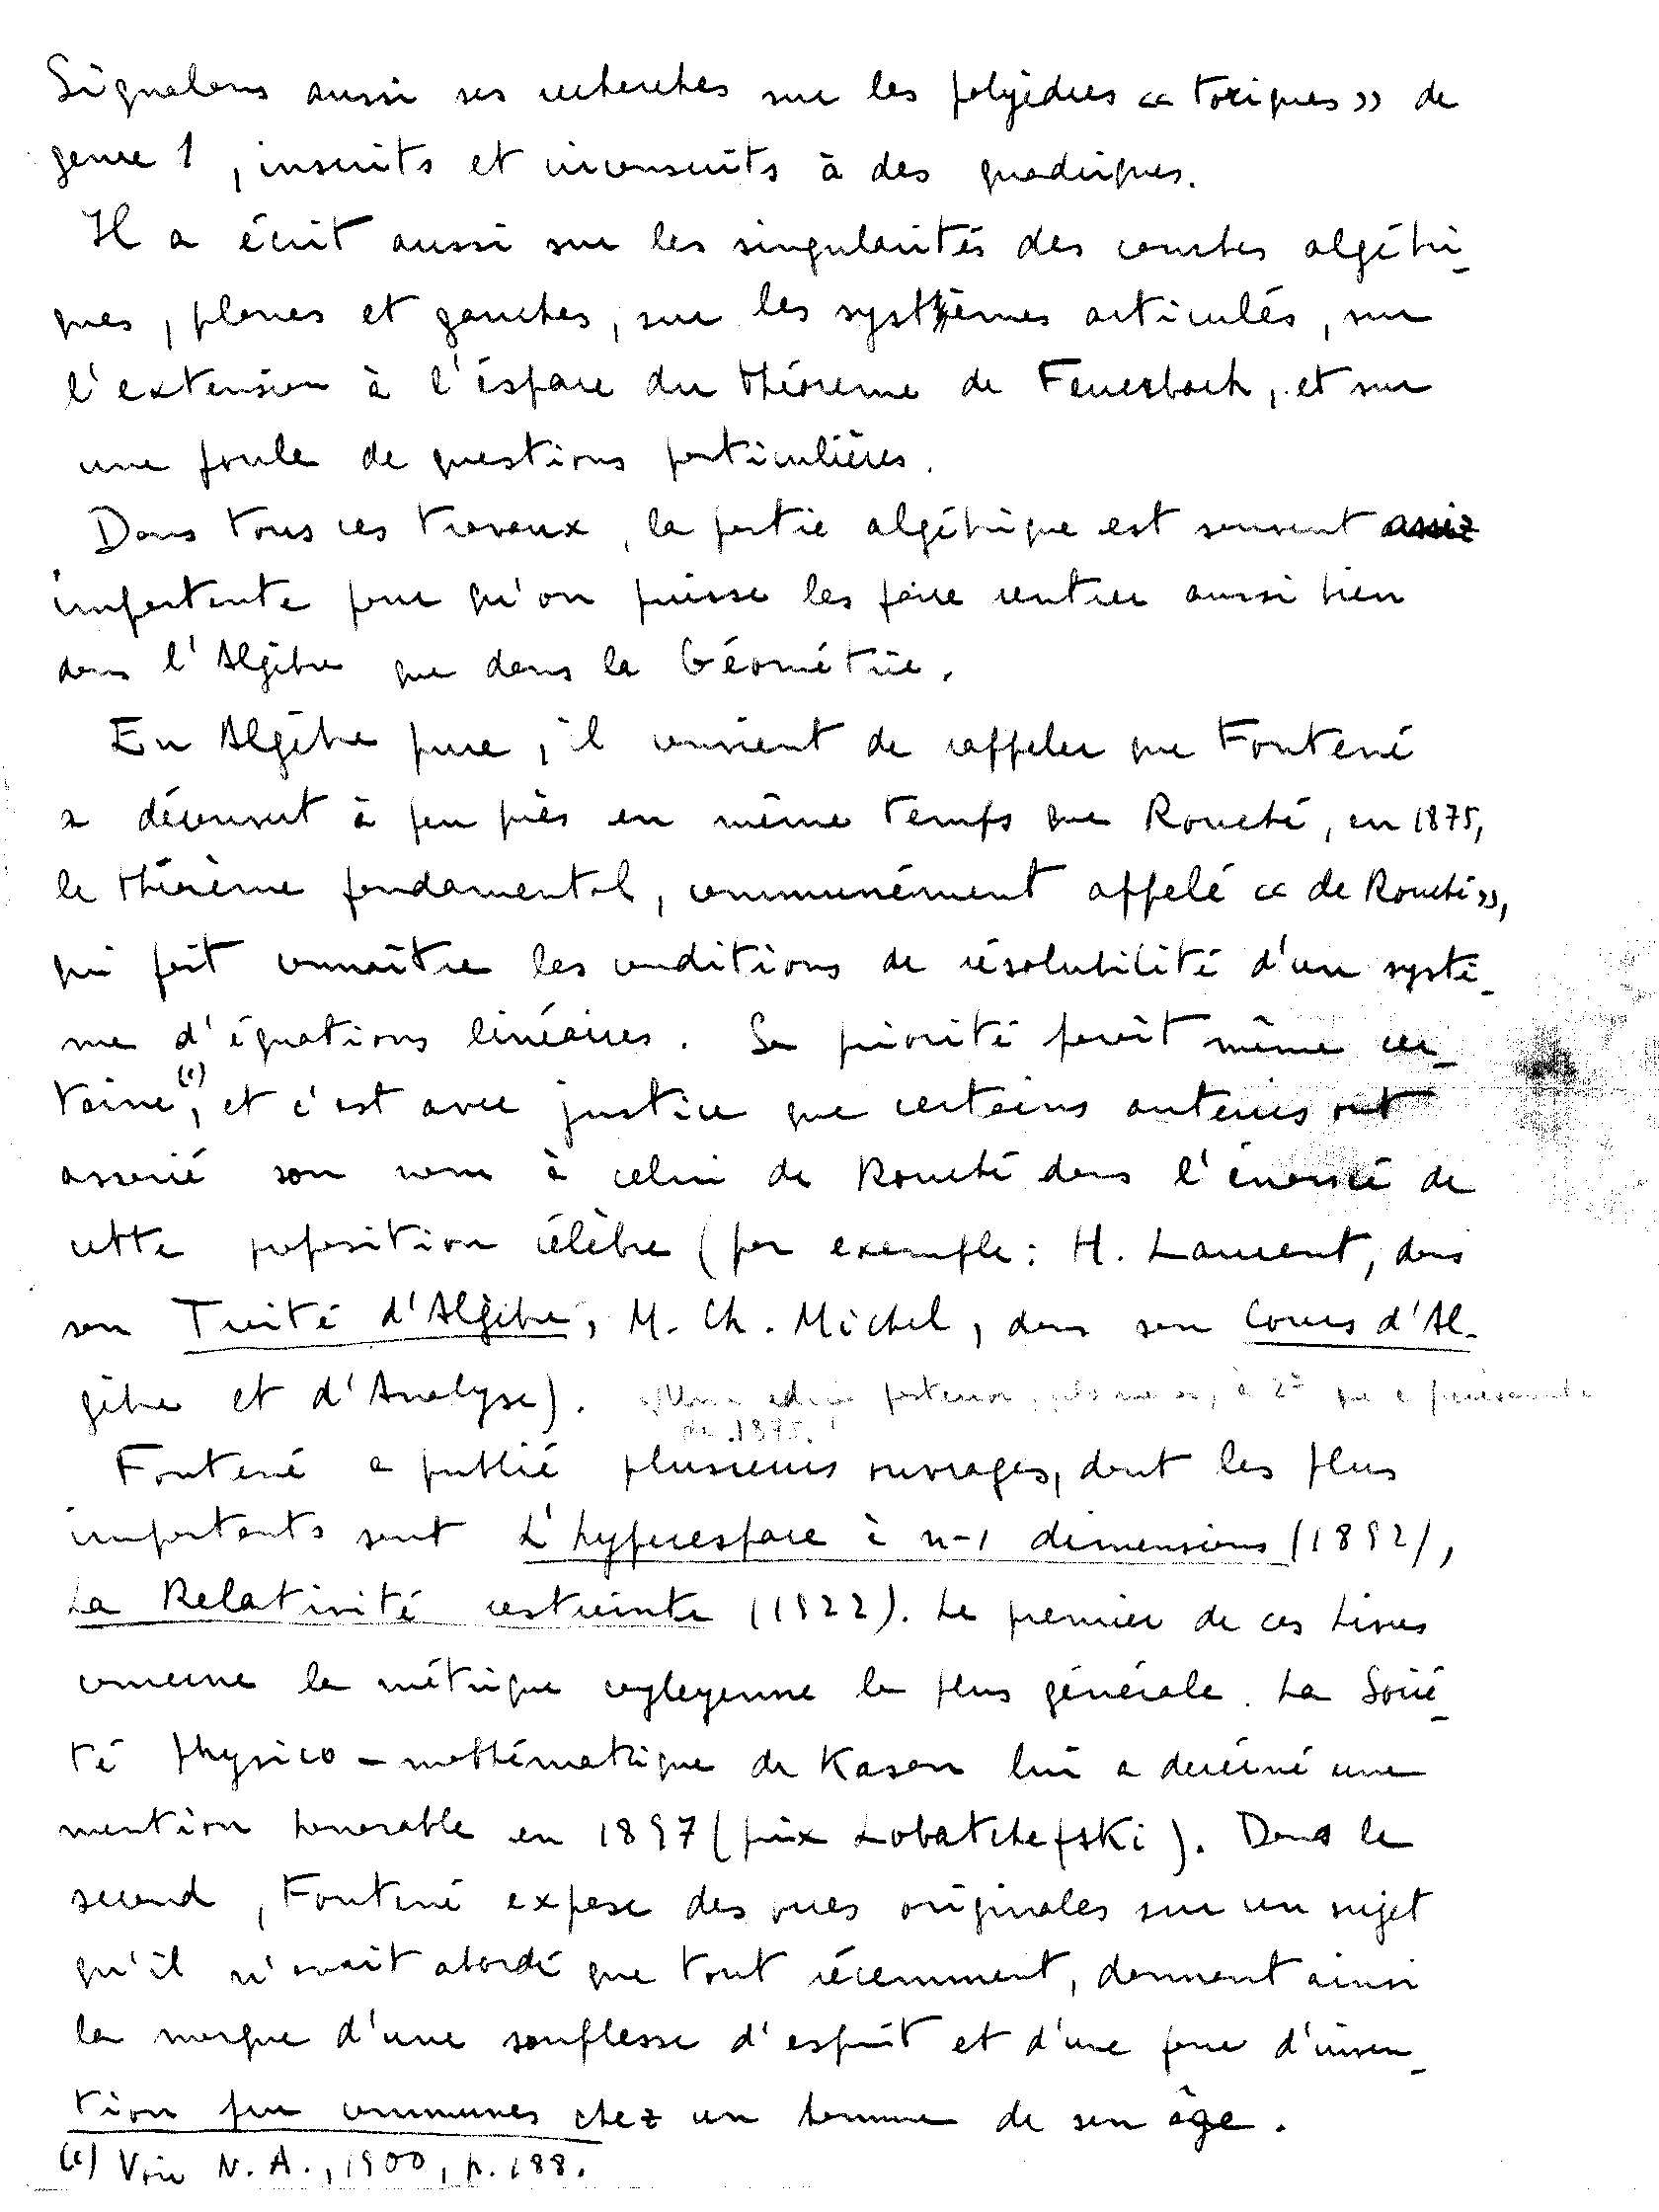 Signalons aussi ses recherches sur les polyèdres « toriques » de
genre 1, inscrits et circonscrits à des quadriques.
Il a écrit aussi sur les singularités des courbes algébri-
ques, planes et gauches, sur les systèmes articulés, sur
l'extension à l'éspace du théoreme de Feuerbach, et sur
une foule de questions particulières.
Dans tous ces travaux, la partie algébrique est souvent assez
importante pour qu'on puisse les faire rentrer aussi bien
dans l'Algèbre que dans la Géométrie.
En Algèbre pure, il convient de rappeler que Fontené
a découvert à peu près en même temps que Rouché, en 1875,
le théorème fondamental, communément appelé « de Rouché »,
qui fait connaître les conditions de résolubilité d'un systè-
me d'équations linéaires. Sa priorité parait même cer-
taine (1), et c'est avec justice que certains auteurs ont
associé son nom à celui de Rouché dans l'énoncé de
cette proposition célèbre (par exemple : H. Laurent, dans
son Traité d'Algèbre, M. Ch. Michel, dans son Cours d'Al-
gèbre et d'Analyse). posterior, a 2ª que
de 1875.
Fontené a publié plusieurs ouvrages, dont les plus
importants sont L'hyperespace à n-1 dimensions (1892),
La Relativité restreinte (1922). Le premier de ces Livres
concerne la métrique cayleyenne la plus générale. La Socié-
té physico-mathématique de Kasan lui a décerné une
mention honorable en 1897 (prix Lobatchefski). Dans le
second, Fontené expose des vues originales sur un sujet
qu'il n'avait abordé que tout récemment, donnant ainsi
la marque d'une souplesse d'esprit et d'une force d'inven-
tion peu communes chez un homme de son âge.
(1) Voir N. A., 1900, p. 188.